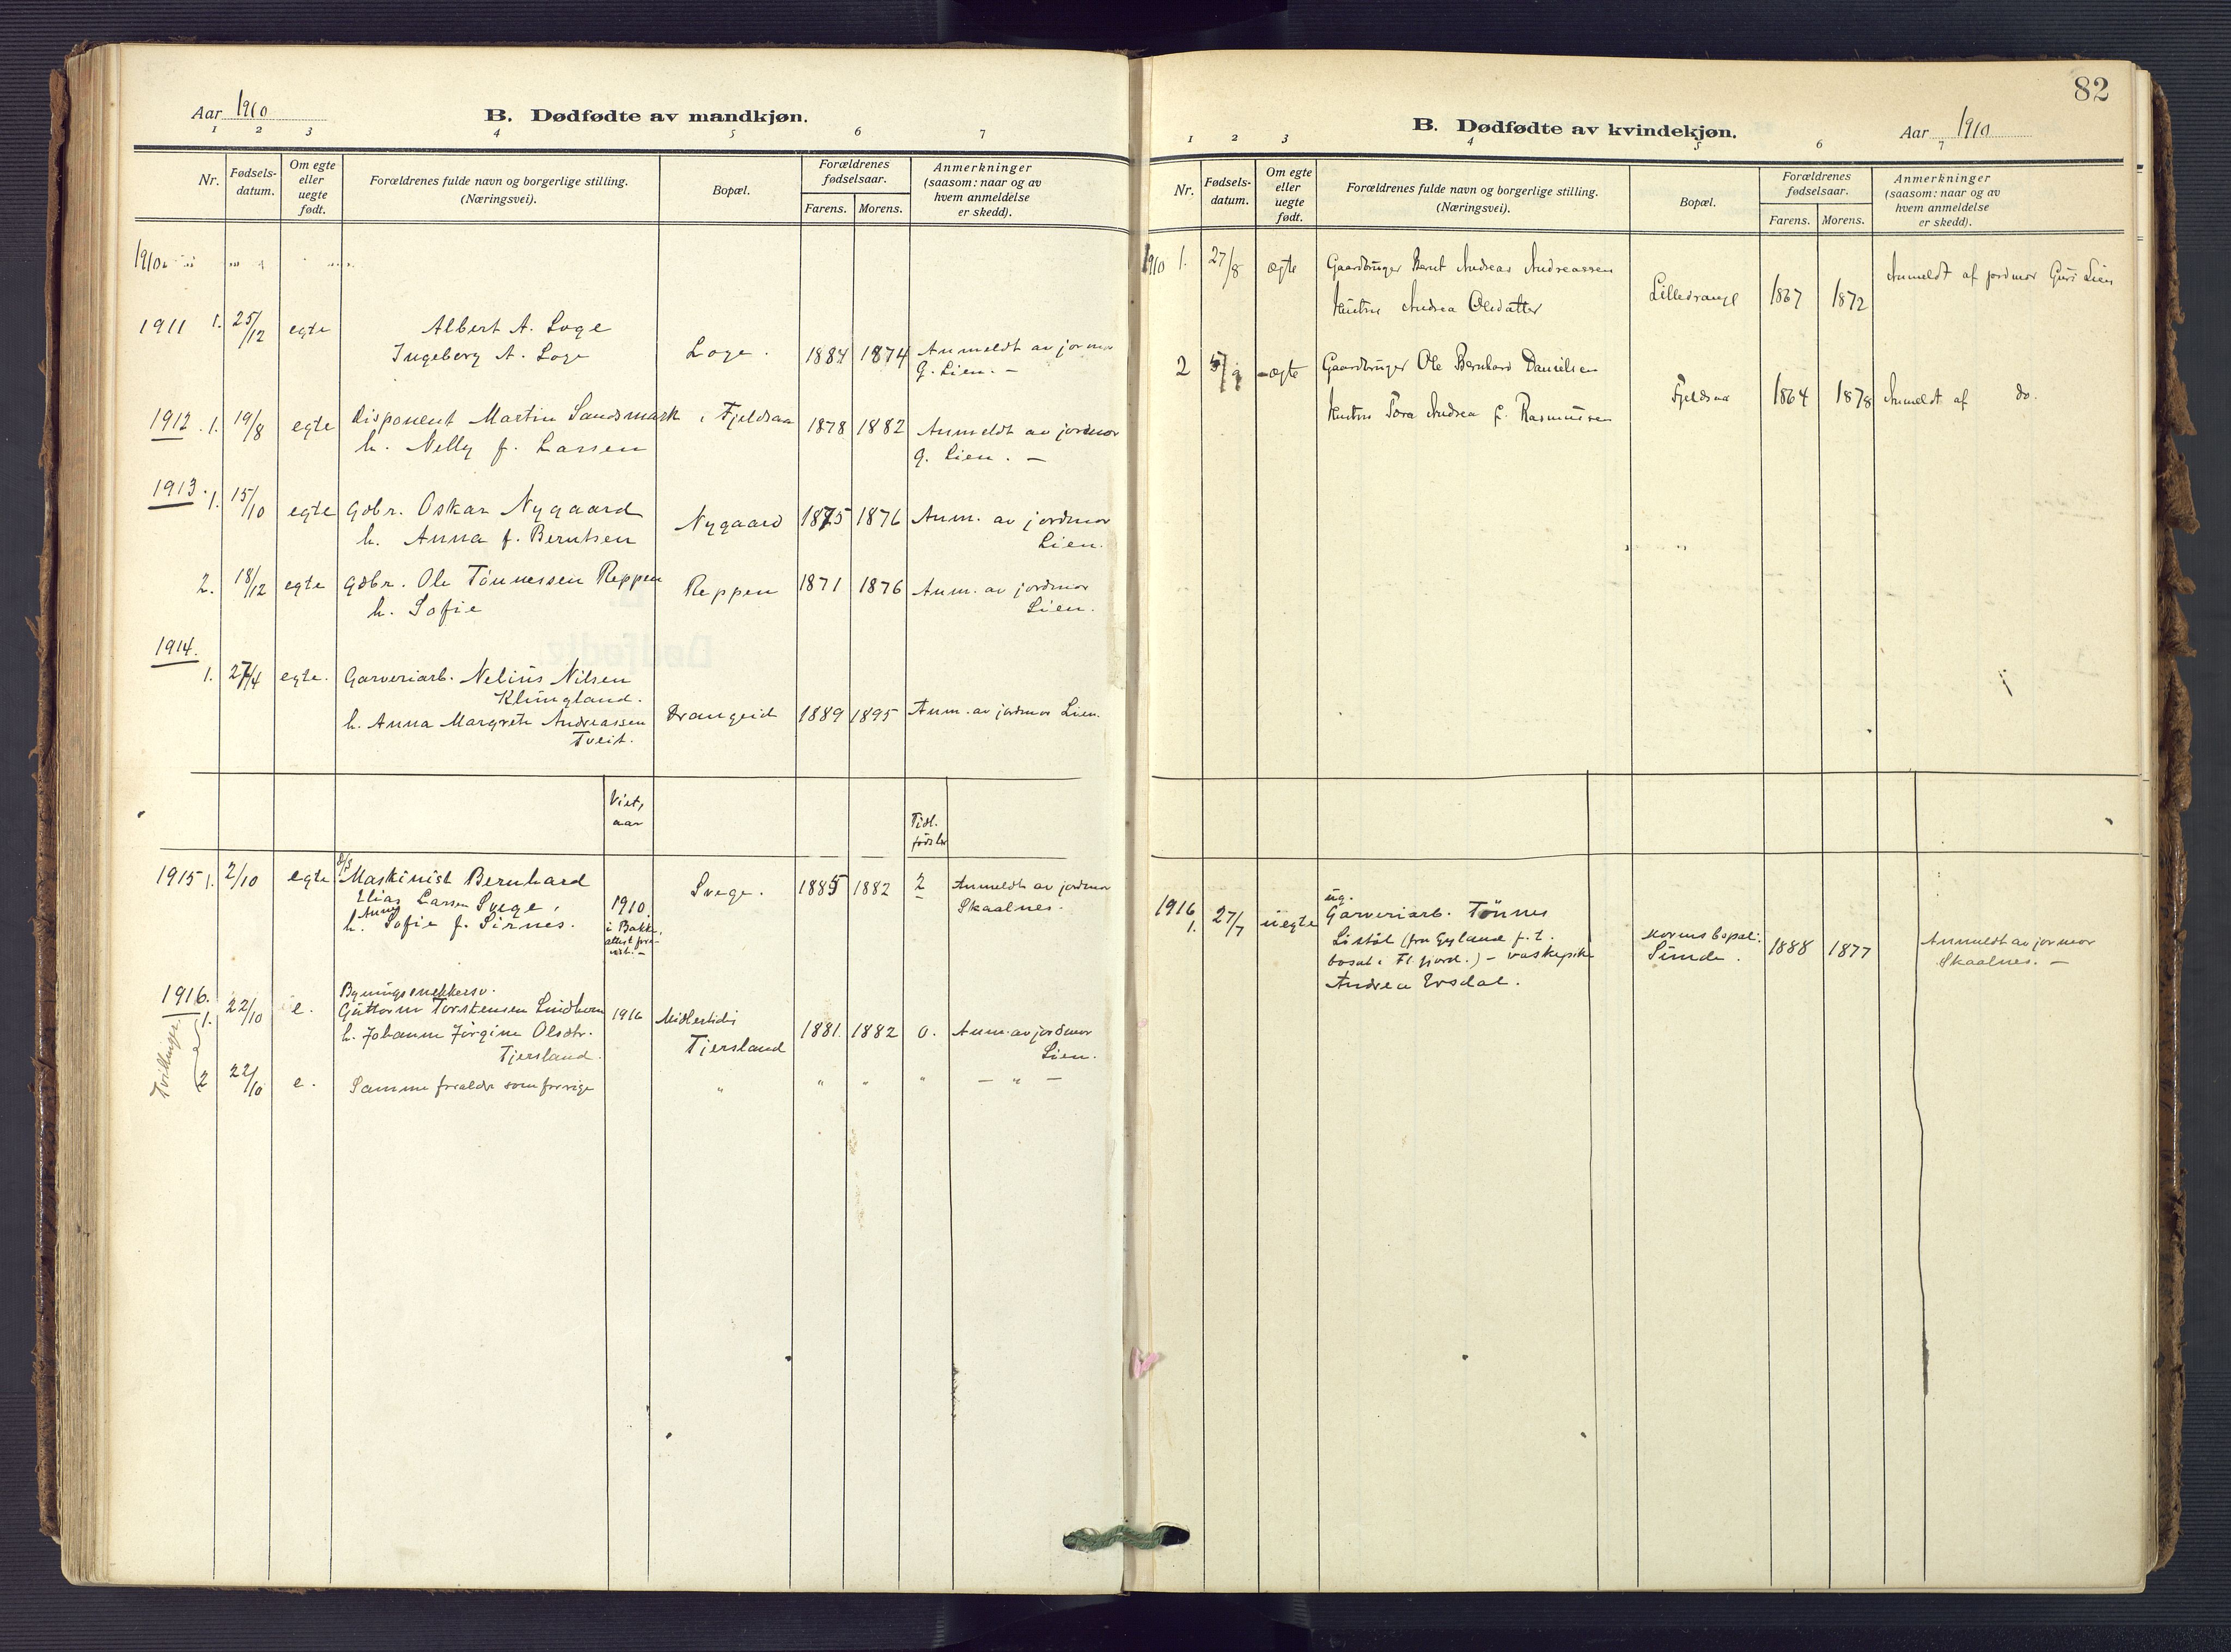 Aar 1910
B. Dødfødte av mandkjøn.
1 2 3 4 5 6 7
Nr.
Fødsels-
datum.
Om egte
eller
uegte
født.
Forældrenes fulde navn og borgerlige stilling.
(Næringsvei).
Bopæl.
Forældrenes
fødselsaar.
Farens. Morens.
Anmerkninger
(saasom: naar og av
hvem anmeldelse
er skedd).
1910
1911 1. 25/12 egte Albert A. Loge
Ingeborg A. Loge Loge. 1884 1874 Anmeldt av jormor
G. Lien. —
1912. 1. 19/8 egte Disponent Martin Sandsmark, Fjeldsaa 1878 1882 Anmeldt av jordmor
h. Nelly f. Larsen G. Lien. —
1913. 1. 15/10 egte Gdbr. Oskar Nygaard Nygaard 1875 1876 Anm. av jordmor
h. Anna f. Berntsen Lien.
2. 18/12 egte Gdbr. Ole Tönnessen Reppen Reppen 1871 1876 Anm. av jordmor
h. Sofie Lien.
1914.
1. 27/4 egte. Garveriarb. Nelius Nilsen
Klungland.
h. Anna Margreth Andreassen Drangeid 1889 1895 Anm. av jordmor Lien.
Tveit.
Viet,
aar
Tidl.
födsler
1915 1. 2/10 egte Maskinist Bernhard Svege. 1885 1882 2 Anmeldt av jordmor
Elias Larsen Svege, 1910 Skaalnes.
h. Anne Sofie f. Sirnes. i Bakke,
attest
1916. Bygningssnekkersv.
1. 22/10 e. Guttorm Torstensen Lindhom 1916 Midlertidig
h. Johanne Jörgine Olsdtr. Tjersland 1881. 1882 0. Anm. av jordmor
Tjersland. Lien.
Tvillinger
2 22/10 e. Samme forældre som forrige " " " " — " —
82
B. Dødfødte av kvindekjøn.
Aar 1910
1 2 3 4 5 6 7
Nr.
Fødsels-
datum.
Om egte
eller
uegte
født.
Forældrenes fulde navn og borgerlige stilling.
(Næringsvei).
Bopæl.
Forældrenes
fødselsaar.
Farens. Morens.
Anmerkninger
(saasom: naar og av
hvem anmeldelse
er skedd).
1910 1. 27/8 egte Gaardbruger Bernt Andreas Andreassen Anmeldt af jordmor Guri Lien
Hustru Andrea Olsdatter Lilledrange 1867 1872
2 5/9 egte Gaardbruger Ole Bernhard Danielsen
Hustru Tora Andrea f. Rasmussen Fjeldsaa 1864 1878 Anmeldt af do.
1916 ug.
1. 27/7 uegte Garveriarb. Tönnes
Listöl (fra Gyland f. t. morens bopæl: 1888 1877 Anmeldt av jormor
bosat i Fl.fjord.) – vaskepike Sunde. Skaalnes. —
Andrea Ersdal.